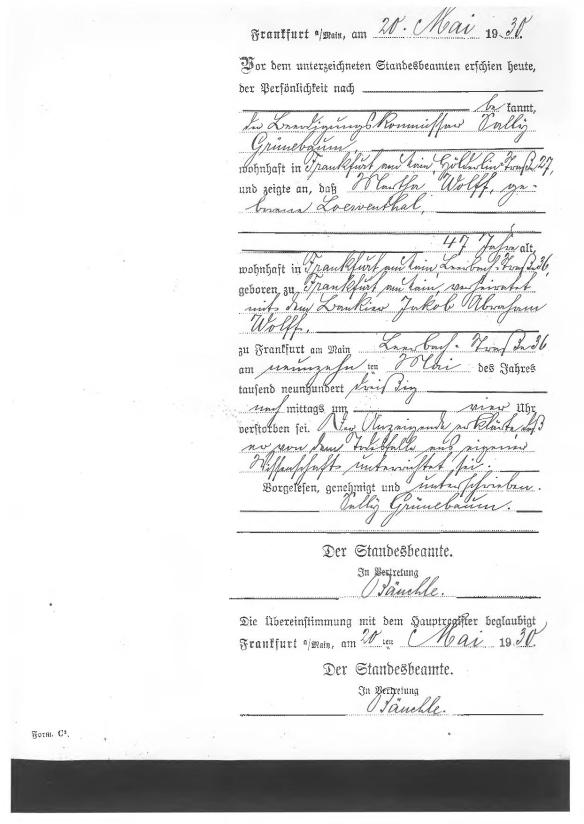 Frankfurt a/Main, am 20. Mai 1930.
Vor dem unterzeichneten Standesbeamten erschien heute,
der Persönlichkeit nach
bekannt,
der Beerdigungskommissar Sally
Grünebaum,
wohnhaft in Frankfurt am Main, Hölderlin-Straße 27,
und zeigte an, daß Martha Wolff, ge-
borene Loewenthal,
47 Jahre alt,
wohnhaft in Frankfurt am Main Leerbach-Straße 36,
geboren zu Frankfurt am Main, verheiratet
mit dem Bankier Jakob Abraham
Wolff,
zu Frankfurt am Main Leerbach-Straße 36
am neunzehnten Mai des Jahres
tausend neunhundert dreißig
nachmittags um vier Uhr
verstorben sei. Der Anzeigende erklärte, daß
er von dem Todesfalle aus eigener
Wissenschaft unterrichtet sei.
Vorgelesen, genehmigt und unterschrieben.
Sally Grünebaum.
Der Standesbeamte.
In Vertretung
Bäuchle.
Die Übereinstimmung mit dem Hauptregister beglaubigt
Frankfurt a/Main, am 20ten Mai 1930.
Der Standesbeamte.
In Vertretung
Bäuchle.
Form. C².